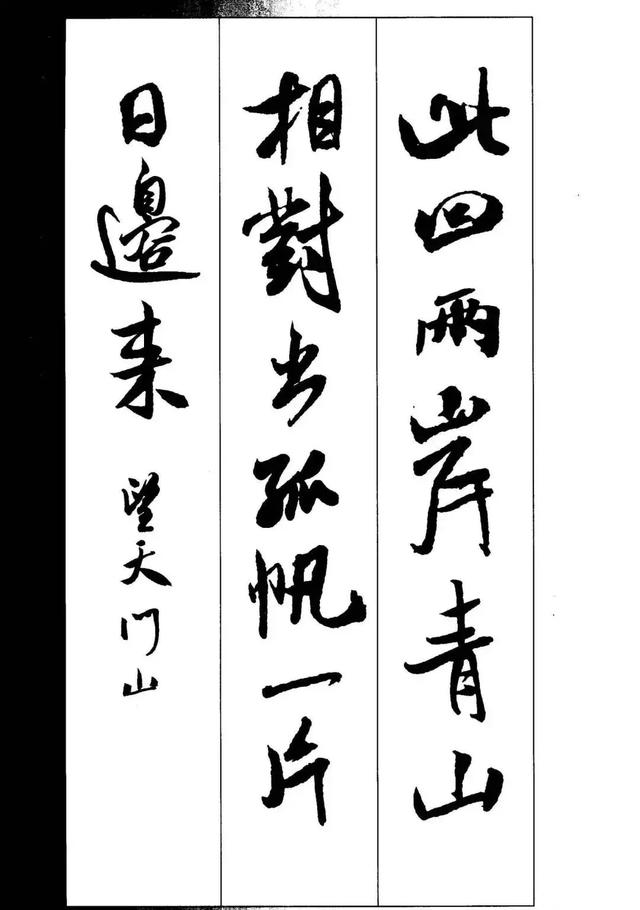 此回兩岸青山
相對出孤帆一片
日邊来
望天门山